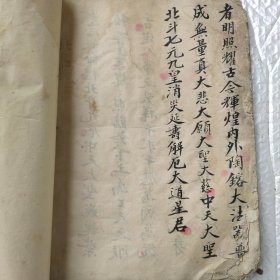 者明照耀古今輝煌内外陶鎔大法
成無量真大悲大願大聖大慈中天大聖
北斗七元九皇消災延壽解厄大道星君